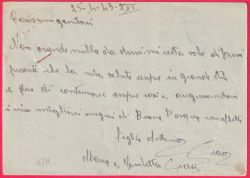 25-4-43-XXI
Carissimi genitori
Non avendo nulla da dirvi mi resta solo di farvi
presente che la mia salute sempre in grande stile
e spero di continuare sempre così e, augurandovi
i miei migliori auguri di Buona Pasqua
figlio
Ciao